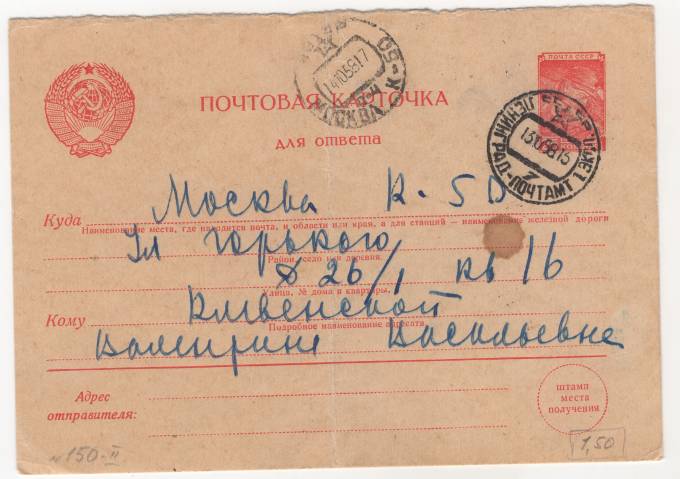 ПОЧТОВАЯ КАРТОЧКА
для ответа
ПОЧТА СССР
МОСКВА К-50
141058 17
ЛЕНИНГРАД-ПОЧТАМТ
131058 15
7
Москва К-50
Куда
Наименование места, где находится почта, и области или края, а для станций — наименование железной дороги
Ул Горького
Район, село или деревня.
д 26/1 кв 16
Улица, № дома и квартиры.
Кливенской
Кому
Подробное наименование адресата
Валентине Васильевне
Адрес
отправителя:
штамп
места
получения
№ 150-II
1,50